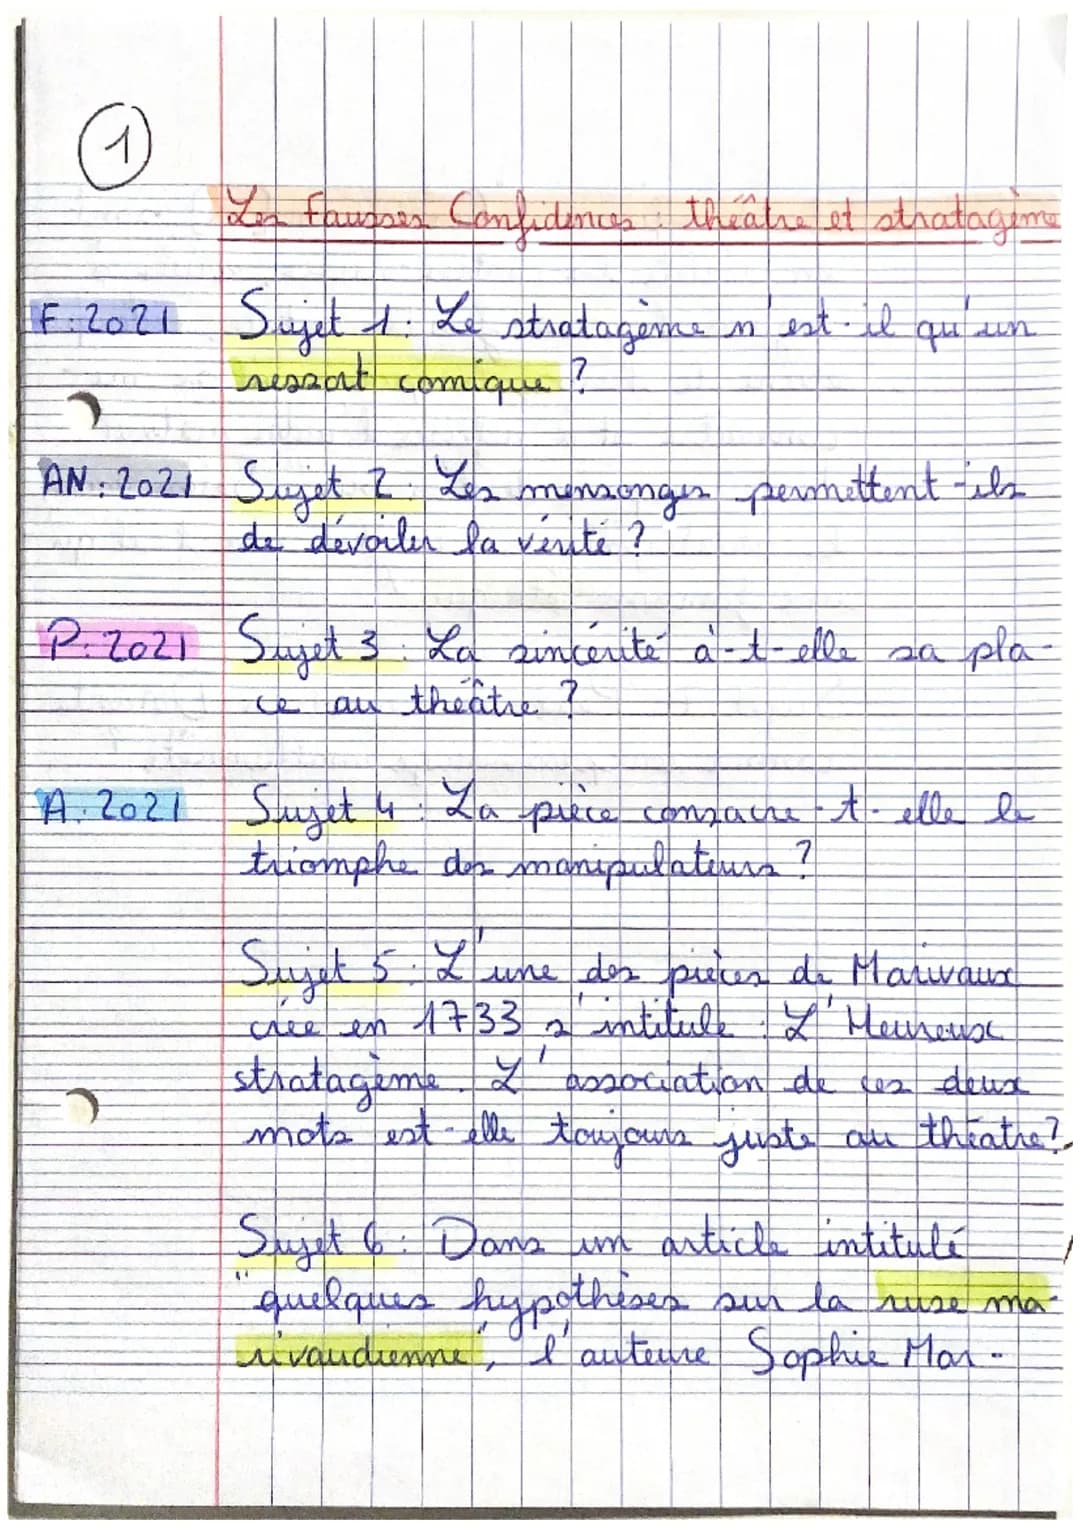 1
Les Fausses Confidences : théâtre et stratagème
F : 2021 Sujet 1 : Le stratagème n'est-il qu'un
ressort comique ?
AN : 2021 Sujet 2 : Les mensonges permettent-ils
de dévoiler la vérité ?
P : 2021 Sujet 3 : La sincérité à-t-elle sa pla-
ce au théâtre ?
A : 2021 Sujet 4 : La pièce consacre-t-elle le
triomphe des manipulateurs ?
Sujet 5 : L'une des pièces de Marivaux
crée en 1733 s'intitule : L'Heureux
stratagème. L'association de ces deux
mots est-elle toujours juste au théâtre ?
Sujet 6 : Dans un article intitulé
"quelques hypothèses sur la ruse ma-
rivaudienne", l'auteure Sophie Mar-